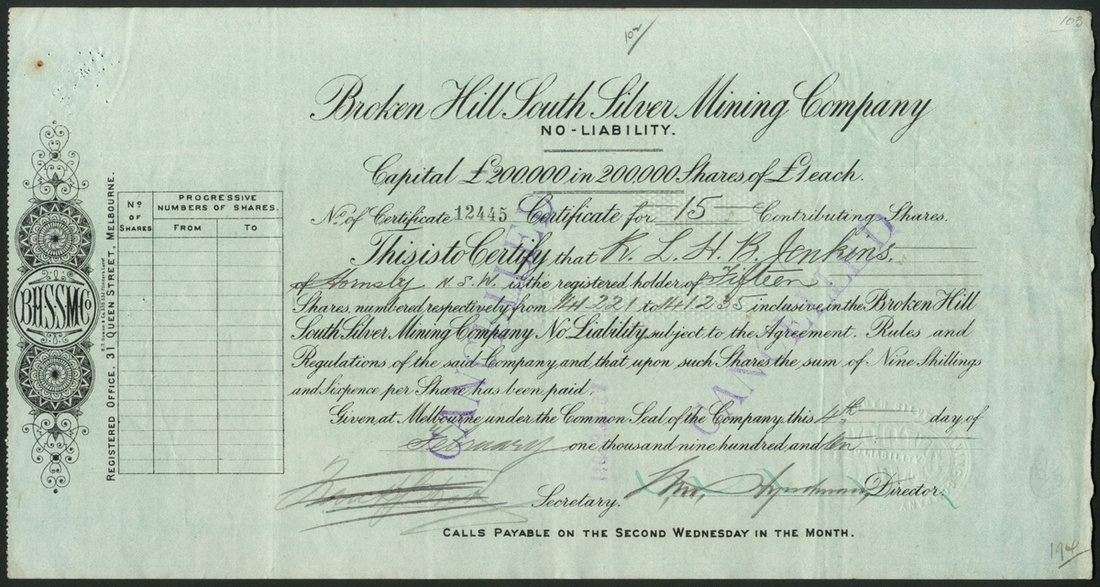 103
102
Broken Hill South Silver Mining Company
NO-LIABILITY.
Capital £200,000 in 200,000 Shares of £1 each.
No. of Certificate 12445 Certificate for 15 Contributing Shares.
This is to Certify that K. L. H. B. Jenkins.
of Hornsby N.S.W. is the registered holder of Fifteen
Shares, numbered respectively from to inclusive in the Broken Hill
South Silver Mining Company, No Liability, subject to the Agreement, Rules and
Regulations of the said Company, and that upon such Shares the sum of Nine Shillings
and Sixpence per Share has been paid.
Given at Melbourne under the Common Seal of the Company, this 4th day of
February one thousand nine hundred and ten
Secretary. Director.
CALLS PAYABLE ON THE SECOND WEDNESDAY IN THE MONTH.
CANCELLED
CANCELLED
No. OF SHARES
PROGRESSIVE NUMBERS OF SHARES.
FROM TO
B.H.S.S.M.Co
REGISTERED OFFICE, 31 QUEEN STREET, MELBOURNE.